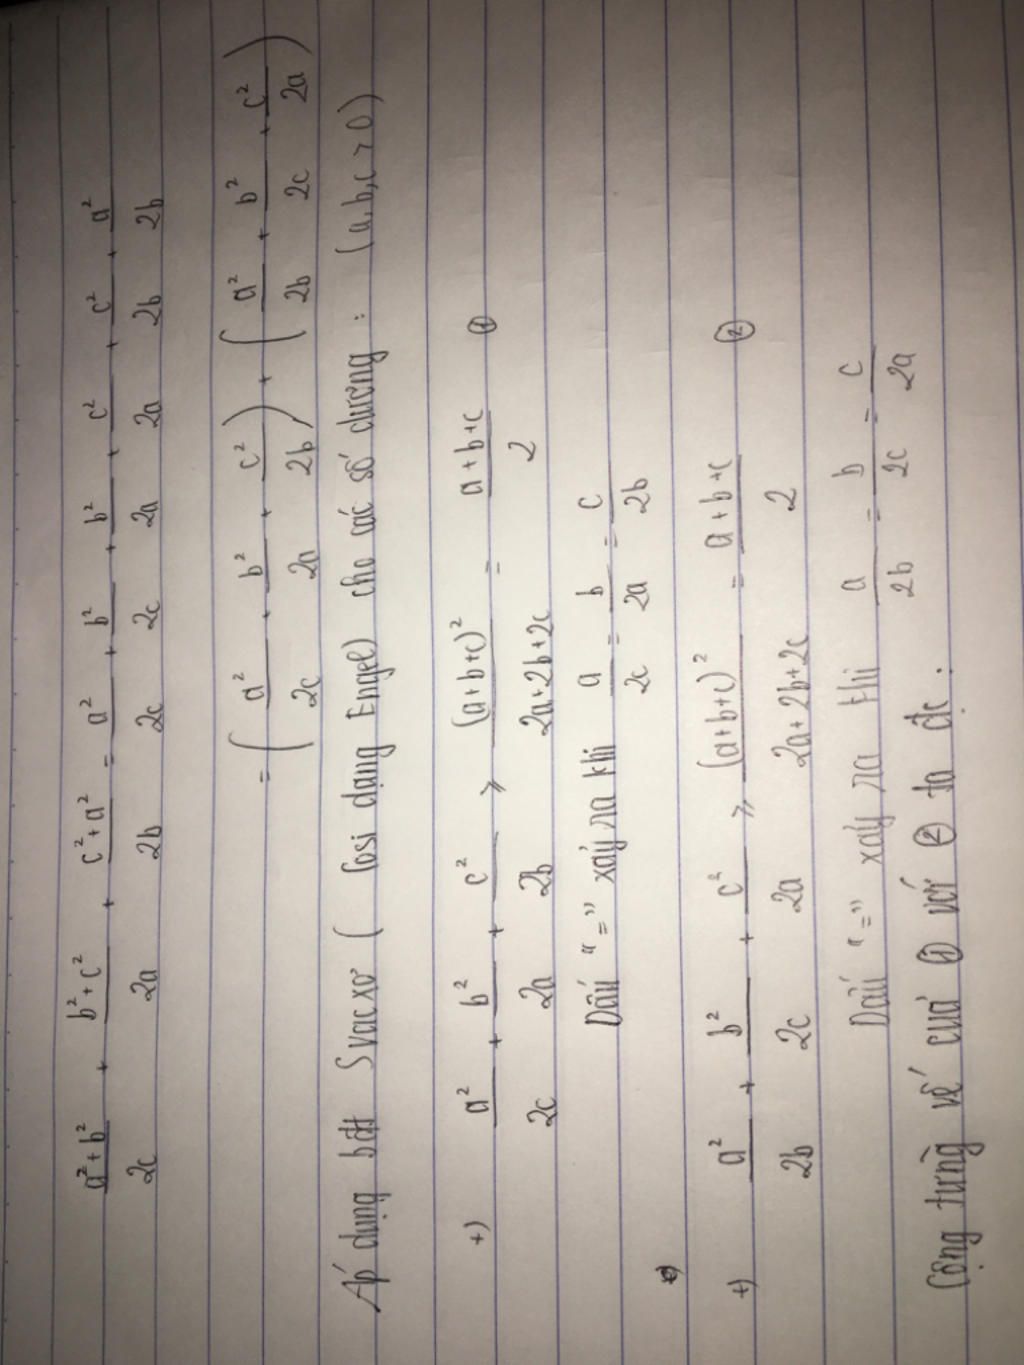 (a²+b²)/2c + (b²+c²)/2a + (c²+a²)/2b = a²/2c + b²/2c + b²/2a + c²/2a + c²/2b + a²/2b
= (a²/2c + b²/2a + c²/2b) + (a²/2b + b²/2c + c²/2a)
Áp dụng bđt Svacxơ ( Cosi dạng Engel) cho các số dương : (a,b,c > 0)
+) a²/2c + b²/2a + c²/2b ≥ (a+b+c)²/(2a+2b+2c) = (a+b+c)/2 ①
Dấu "=" xảy ra khi a/2c = b/2a = c/2b
+) a²/2b + b²/2c + c²/2a ≥ (a+b+c)²/(2a+2b+2c) = (a+b+c)/2 ②
Dấu "=" xảy ra khi a/2b = b/2c = c/2a
Cộng từng vế của ① với ② ta đc :